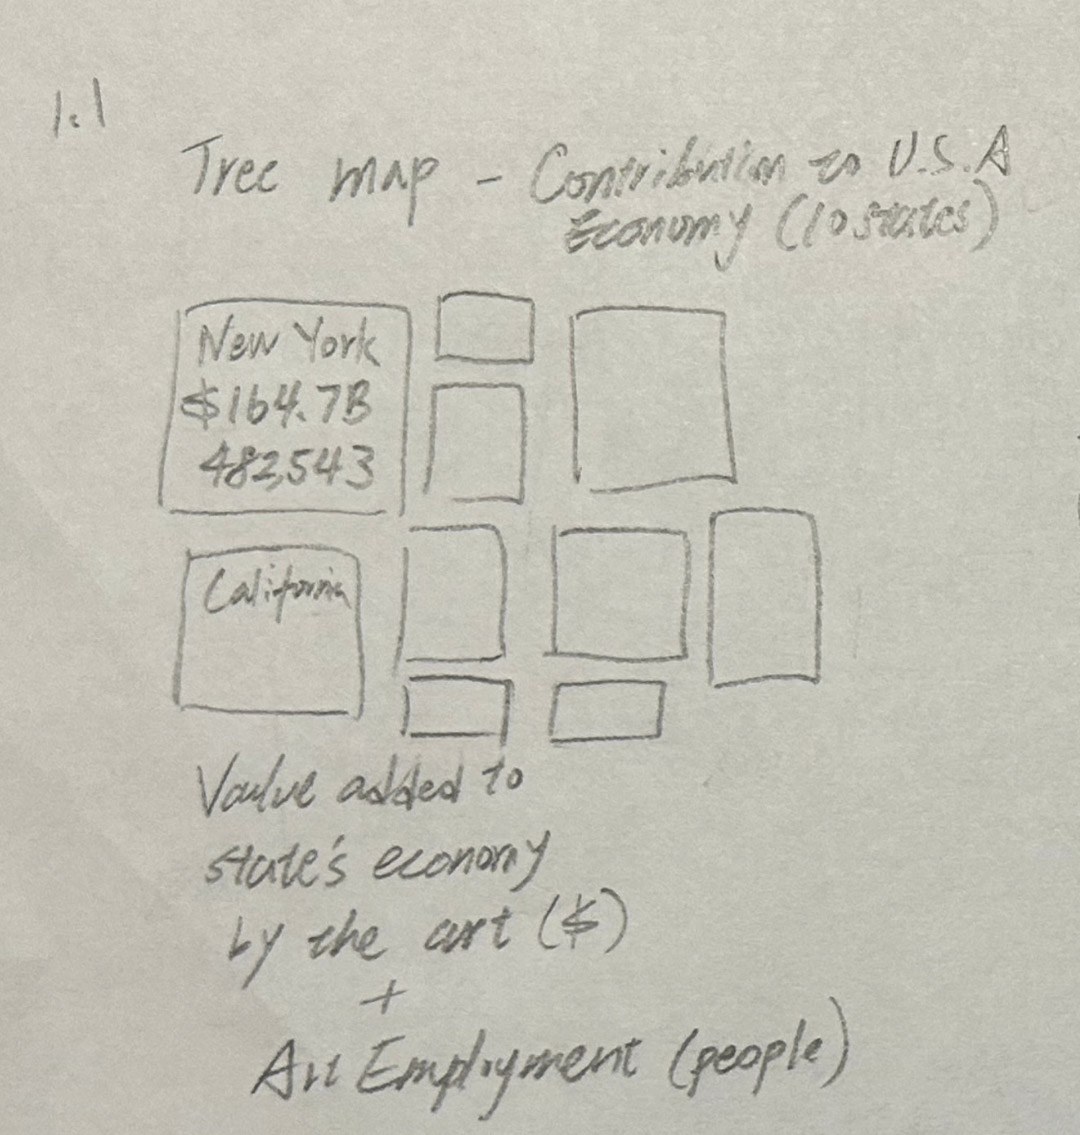 1.1
Tree map - Contribution to U.S.A
Economy (10 states)
New York
$164.7B
482,543
California
Value added to
state's economy
by the art ($)
+
Art Employment (people)